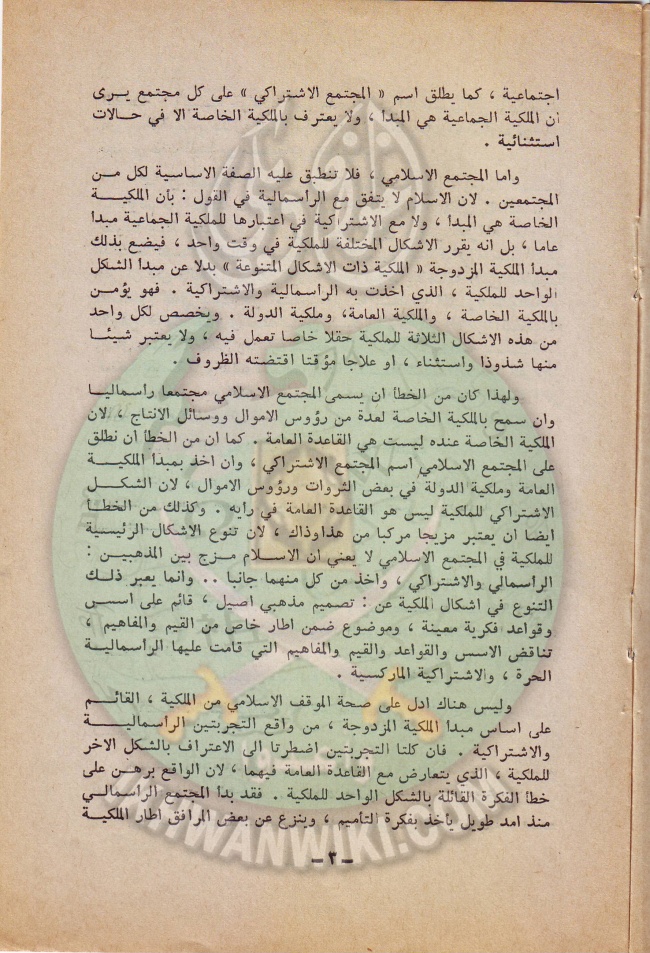 اجتماعية ، كما يطلق اسم « المجتمع الاشتراكي » على كل مجتمع يـرى
ان الملكية الجماعية هي المبدأ ، ولا يعترف بالملكية الخاصة الا في حالات
استثنائية .
واما المجتمع الاسلامي ، فلا تنطبق عليه الصفة الاساسية لكل مـن
المجتمعين . لان الاسلام لا يتفق مع الرأسمالية في القول : بأن الملكيـة
الخاصة هي المبدأ ، ولا مع الاشتراكية في اعتبارها للملكية الجماعية مبدأ
عاما ، بل انه يقرر الاشكال المختلفة للملكية في وقت واحد ، فيضع بذلك
مبدأ الملكية المزدوجة « الملكية ذات الاشكال المتنوعة » بدلا عن مبدأ الشكل
الواحد للملكية ، الذي اخذت به الرأسمالية والاشتراكية . فهو يؤمـن
بالملكية الخاصة ، والملكية العامة، وملكية الدولة . ويخصص لكل واحد
من هذه الاشكال الثلاثة للملكية حقلا خاصا تعمل فيه ، ولا يعتبر شيئـا
منها شذوذا واستثناء ، او علاجا مؤقتا اقتضته الظروف .
ولهذا كان من الخطأ ان يسمى المجتمع الاسلامي مجتمعا رأسماليـا
وان سمح بالملكية الخاصة لعدة من رؤوس الاموال ووسائل الانتاج ، لان
الملكية الخاصة عنده ليست هي القاعدة العامة . كما ان من الخطأ ان نطلق
على المجتمع الاسلامي اسم المجتمع الاشتراكي ، وان اخذ بمبدأ الملكيـة
العامة وملكية الدولة في بعض الثروات ورؤوس الاموال ، لان الشكـل
الاشتراكي للملكية ليس هو القاعدة العامة في رأيه . وكذلك من الخطـأ
ايضا ان يعتبر مزيجا مركبا من هذاوذاك ، لان تنوع الاشكال الرئيسية
للملكية في المجتمع الاسلامي لا يعني ان الاسلام مـزج بين المذهبيـن :
الرأسمالي والاشتراكي ، واخذ من كل منهما جانبا .. وانما يعبر ذلـك
التنوع في اشكال الملكية عن : تصميم مذهبي اصيل ، قائم على اسس
وقواعد فكرية معينة ، وموضوع ضمن اطار خاص من القيم والمفاهيم ،
تناقض الاسس والقواعد والقيم والمفاهيم التي قامت عليها الرأسماليـة
الحرة ، والاشتراكية الماركسية .
وليس هناك ادل على صحة الموقف الاسلامي من الملكية ، القائـم
على اساس مبدأ الملكية المزدوجة ، من واقع التجربتين الرأسماليـة
والاشتراكية . فان كلتا التجربتين اضطرتا الى الاعتراف بالشكل الاخر
للملكية ، الذي يتعارض مع القاعدة العامة فيهما ، لان الواقع برهـن على
خطأ الفكرة القائلة بالشكل الواحد للملكية . فقد بدأ المجتمع الرأسمالـي
منذ امد طويل يأخذ بفكرة التأميم ، وينزع عن بعض المرافق اطار الملكية
ـ ٣ ـ
IKHWANWIKI.COM